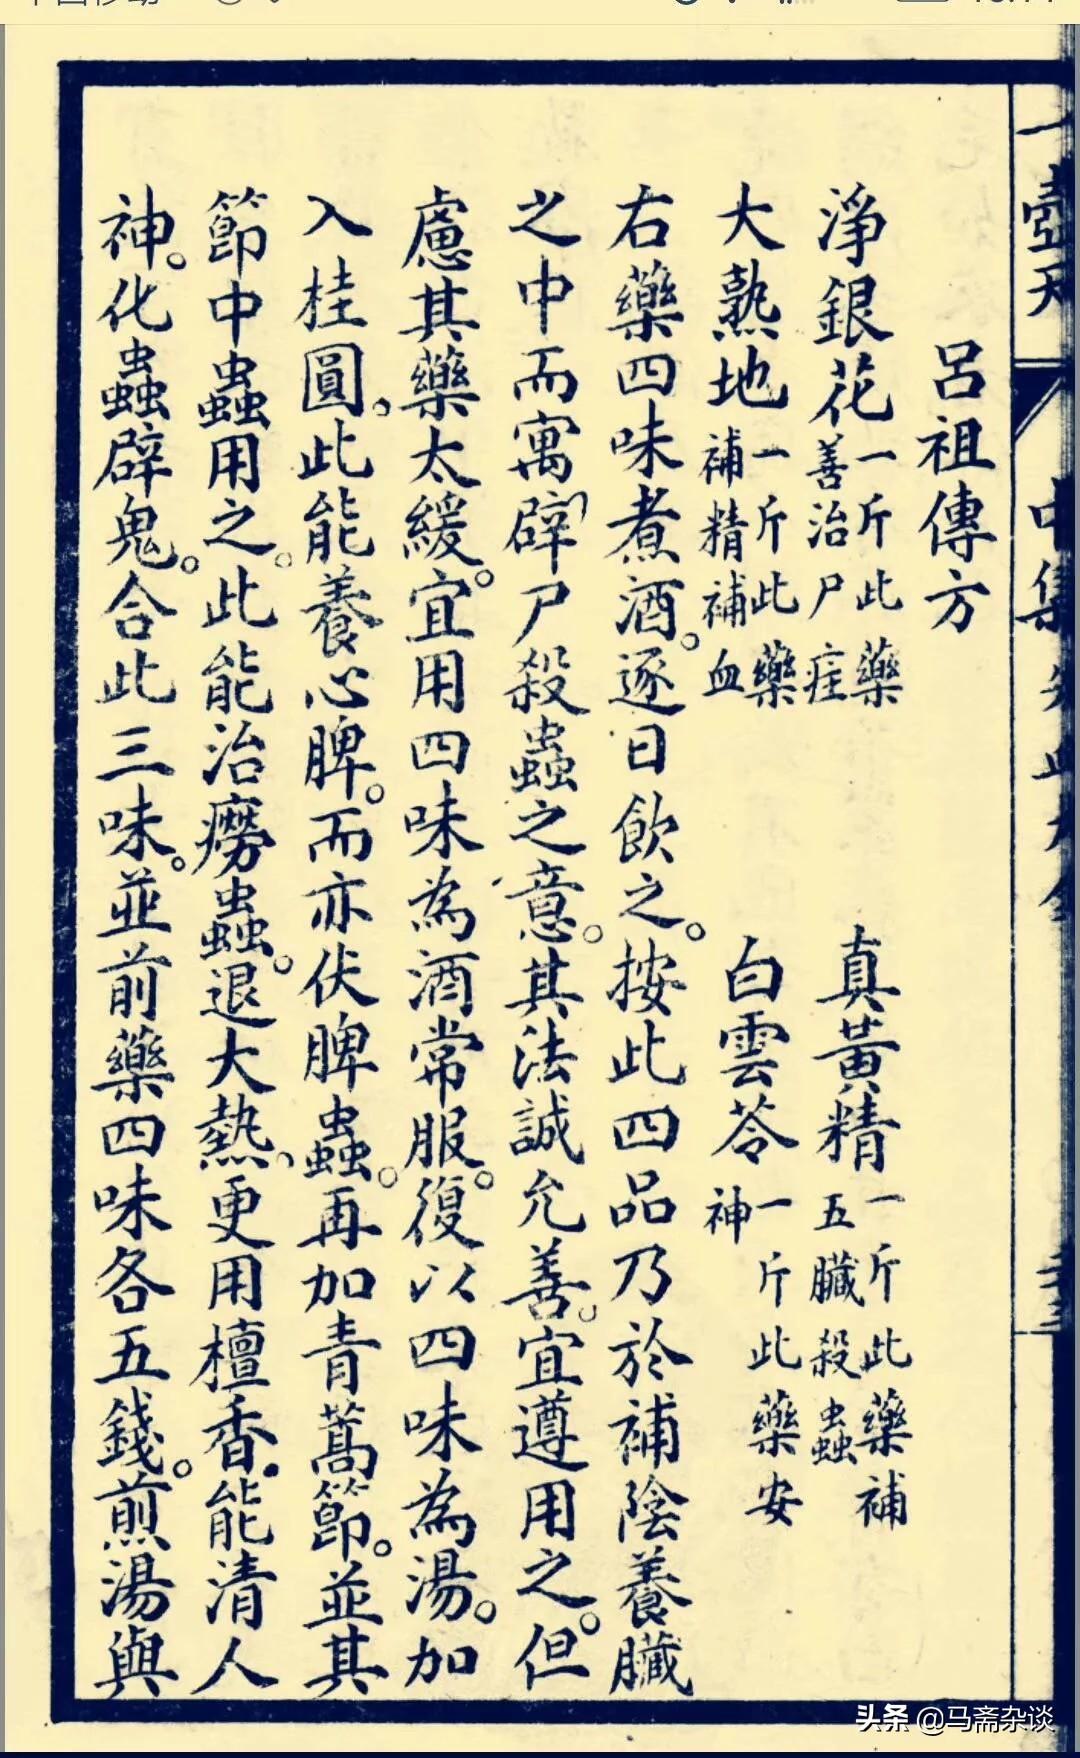 呂祖傳方
淨銀花一斤此藥善治尸疰 真黃精一斤此藥補五臟殺蟲
大熟地一斤此藥補精補血 白雲苓一斤此藥安神
右藥四味煮酒。逐日飲之。按此四品乃於補陰養臟
之中而寓辟尸殺蟲之意。其法誠允善。宜遵用之。但
慮其藥太緩。宜用四味為酒常服。復以四味為湯。加
入桂圓。此能養心脾。而亦伏脾蟲。再加青蒿節。並其
節中蟲用之。此能治癆蟲。退大熱、更用檀香。能清人
神。化蟲辟鬼。合此三味。並前藥四味各五錢。煎湯與
壺天
中集
头条 @马斋杂谈